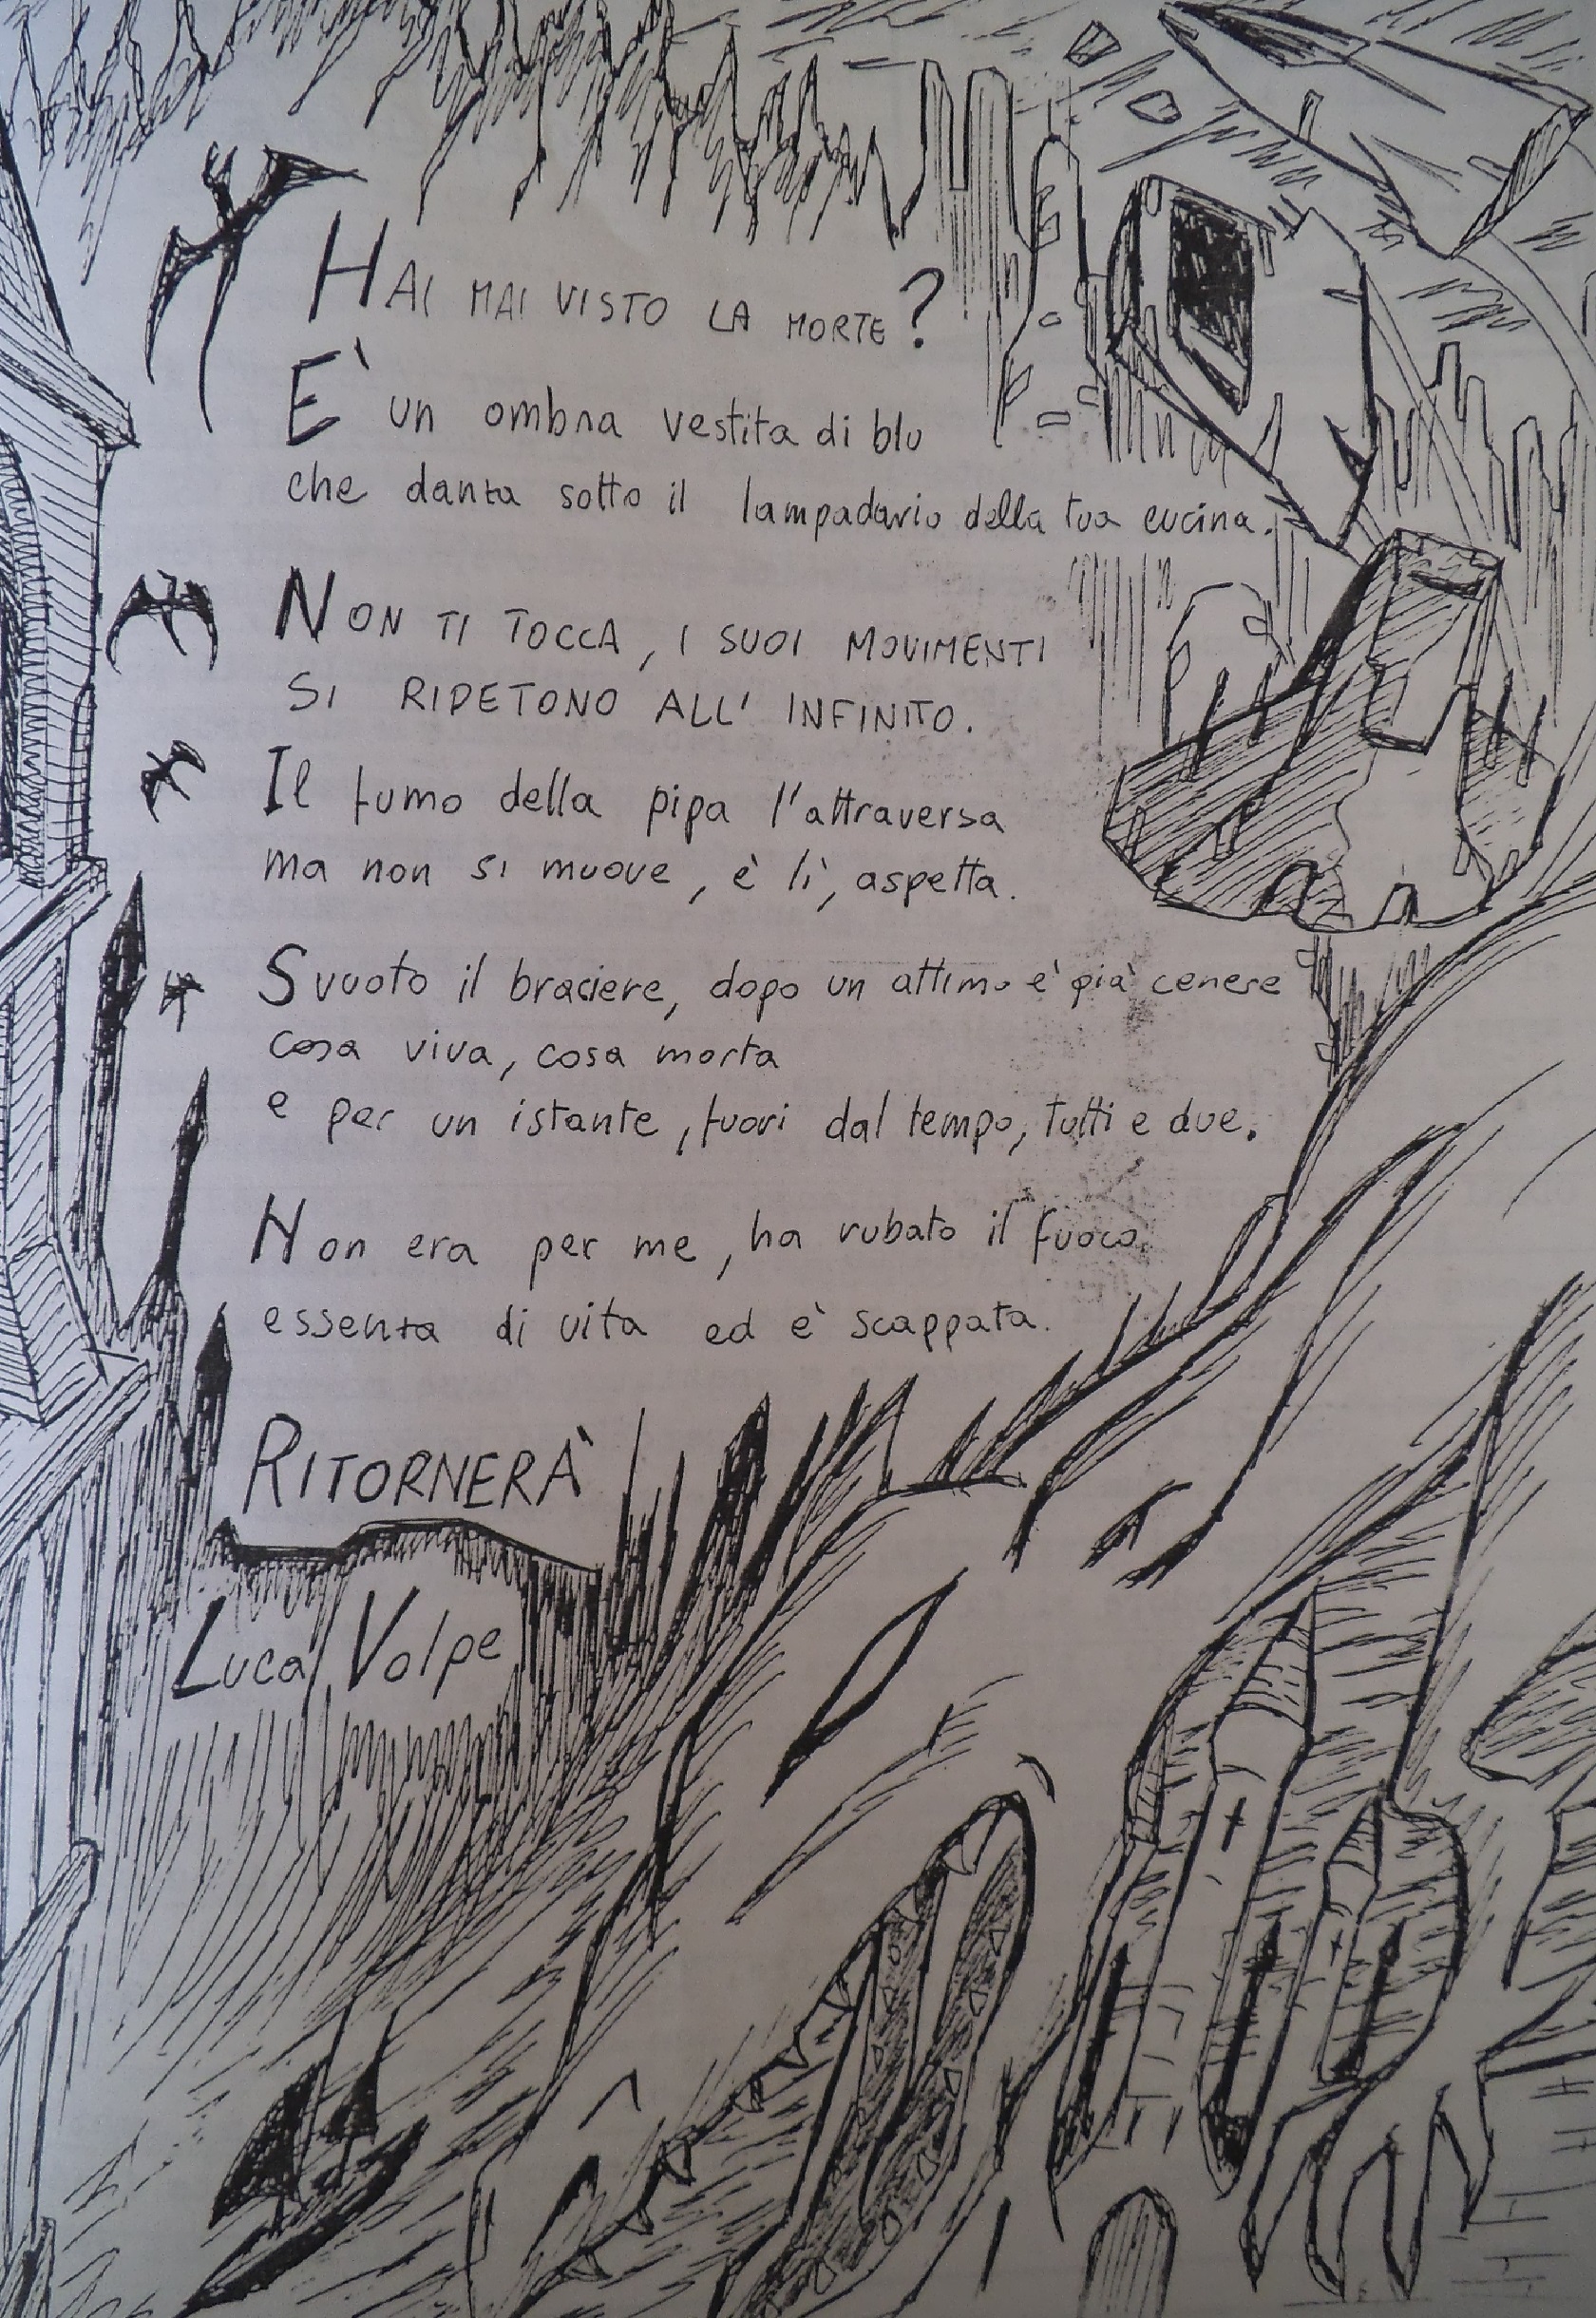 HAI MAI VISTO LA MORTE?
E' un ombra vestita di blu
che danza sotto il lampadario della tua cucina.
NON TI TOCCA, I SUOI MOVIMENTI
SI RIPETONO ALL' INFINITO.
Il fumo della pipa l'attraversa
ma non si muove, è lì, aspetta.
Svuoto il braciere, dopo un attimo è già cenere
cosa viva, cosa morta
e per un istante, fuori dal tempo, tutti e due.
Non era per me, ha rubato il fuoco,
essenza di vita ed è scappata.
RITORNERÀ
Luca Volpe